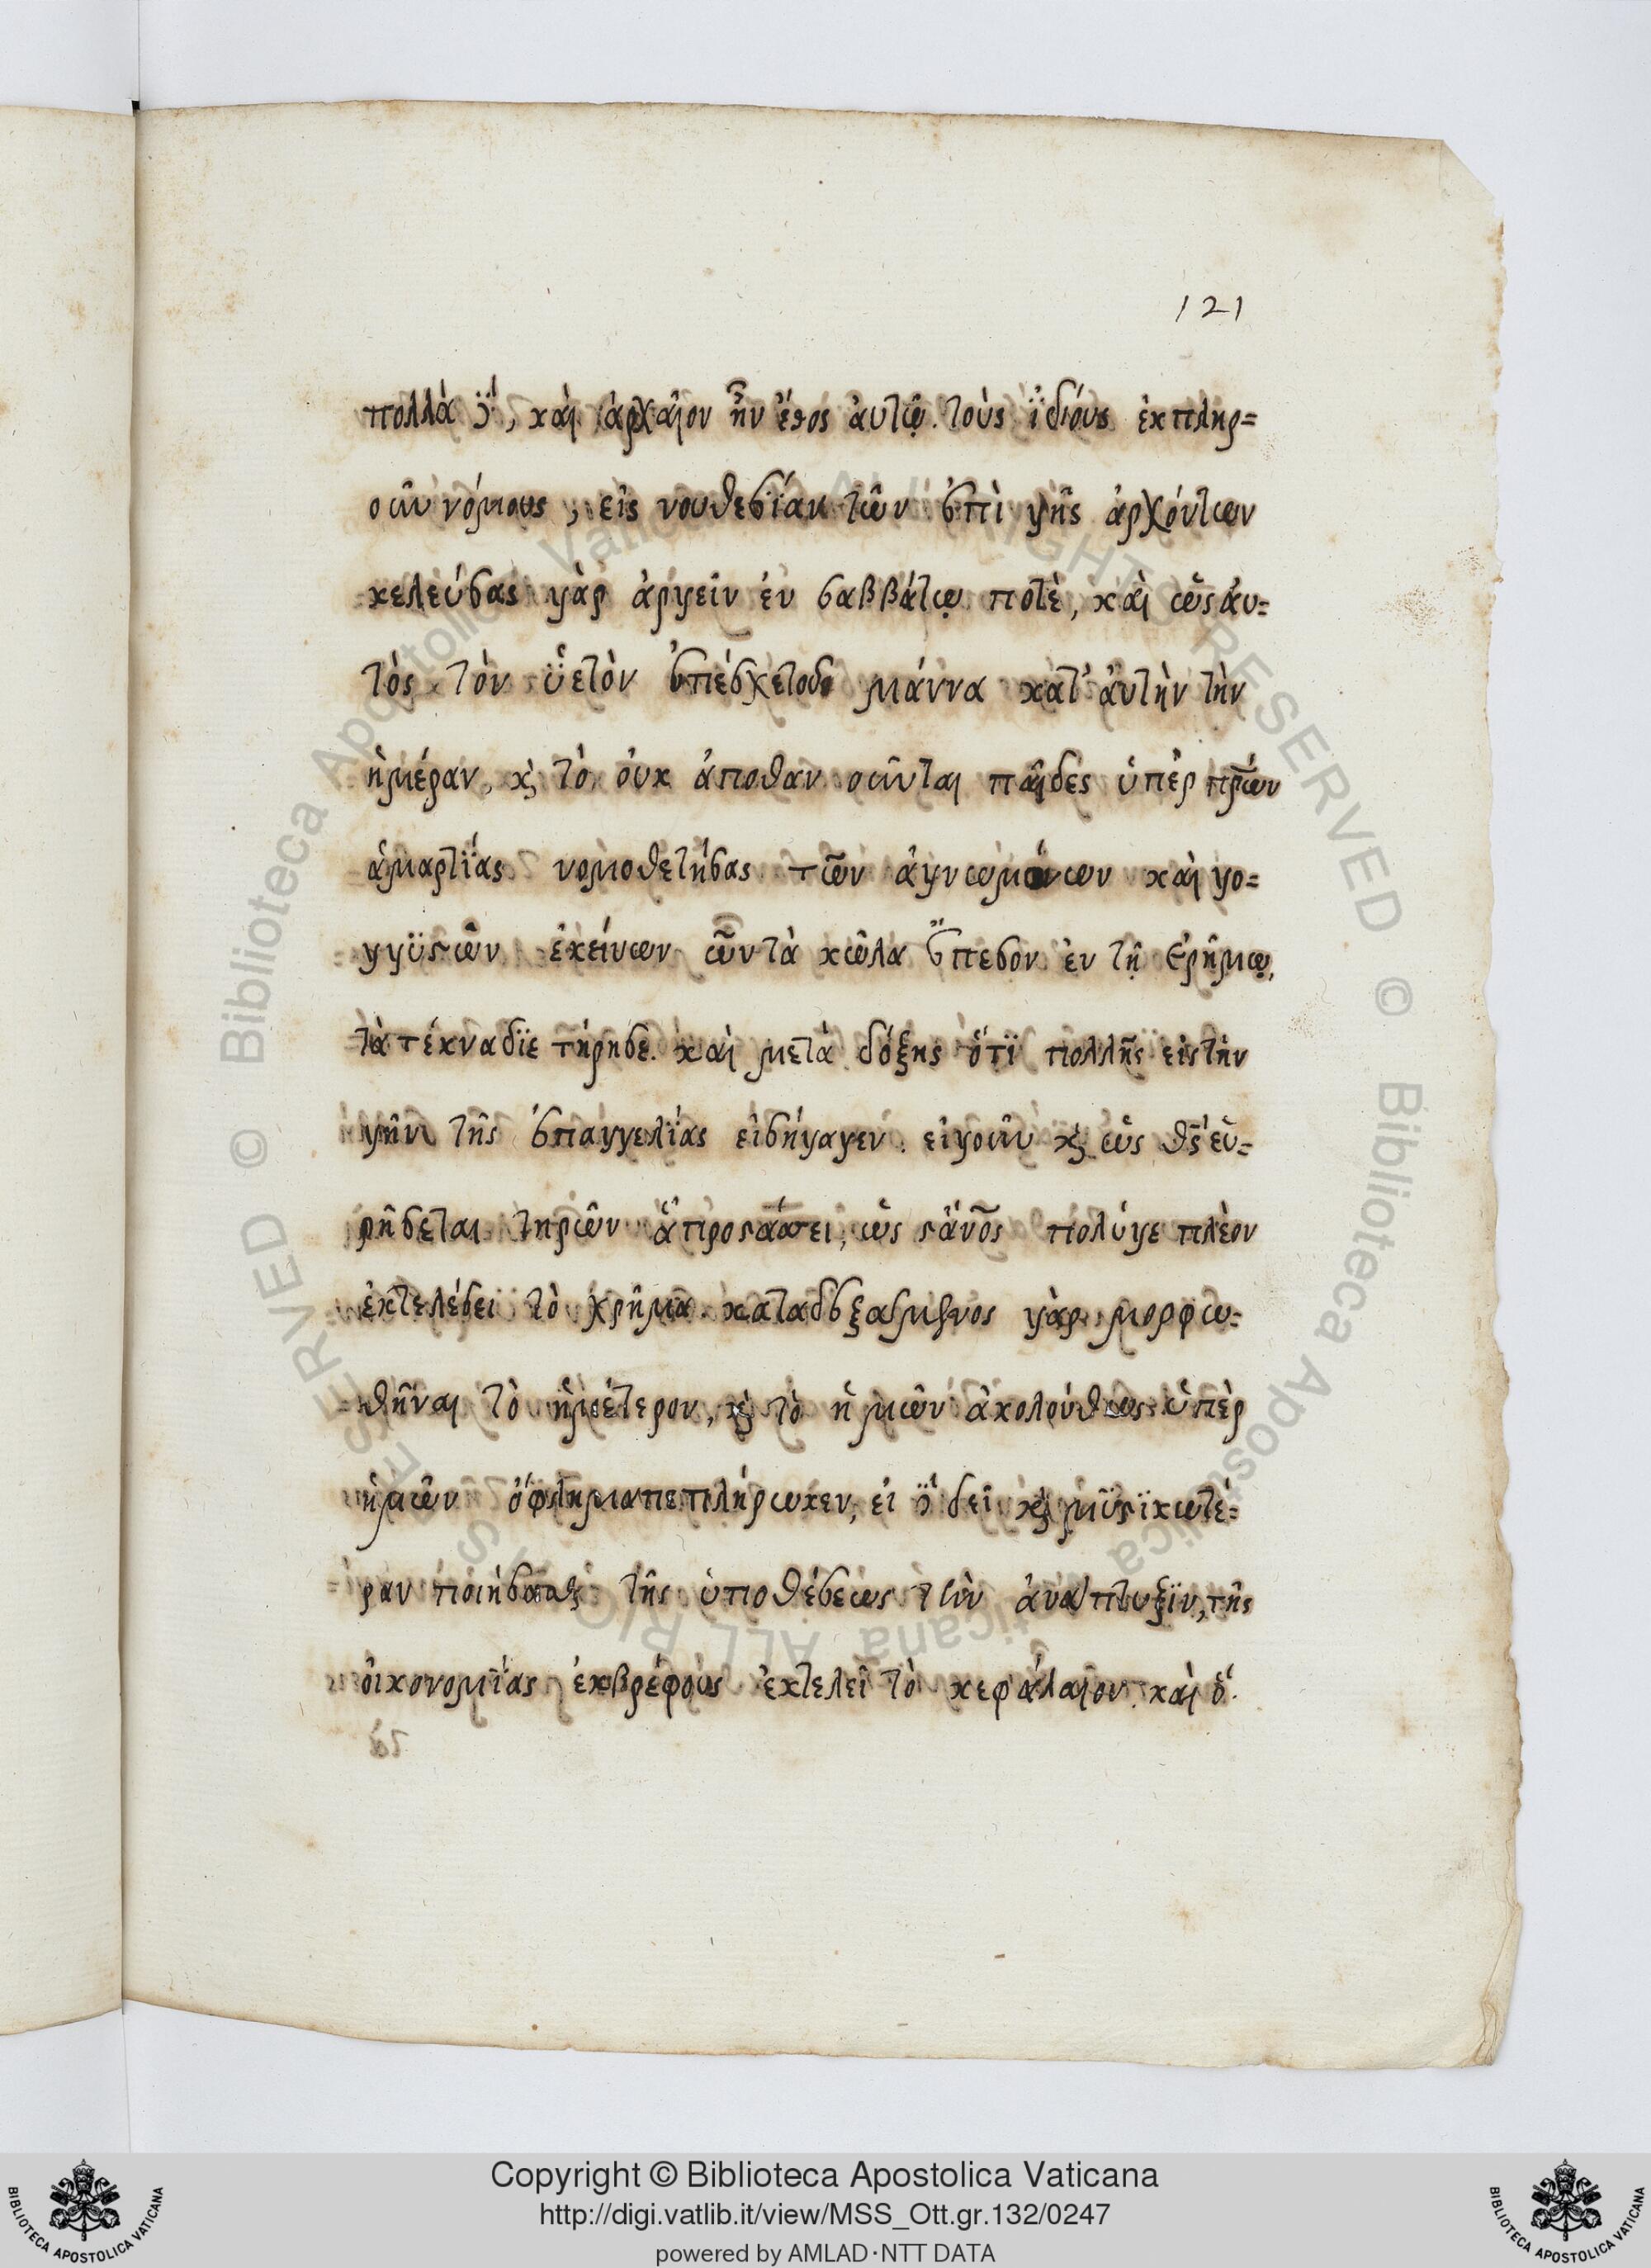 121
πολλὰ ὅ, καὶ ἀρχαῖον ἦν ἔθος ἀυτῷ. τοὺς ἰδίους ἐκπληρ=
οῦν νόμους, εἰς νουθεσίαν τῶν ἐπὶ γῆς ἀρχόντων
κελεύσας γὰρ ἀργεῖν ἐν σαββάτῳ ποτὲ, καὶ ὡς ἀυ=
τὸς τὸν ὑετὸν ἐπέσχε τοῦ μάννα κατ' ἀυτὴν τὴν
ἡμέραν, κ τὸ ὀυκ ἀποθανοῦνται παῖδες ὑπὲρ πρων
ἁμαρτίας νομοθετήσας τῶν ἀγνωμόνων καὶ γο=
γγϋστῶν ἐκείνων ὧν τὰ κῶλα ἔπεσον ἐν τῇ ἐρήμῳ,
τὰ τέκνα διετήρησε. καὶ μετὰ δόξης ὅτϊ πολλῆς εἰς τὴν
γῆν τῆς ἐπαγγελίας εἰσήγαγεν. εἰ γοῦν κ ὡς θς εὑ=
ρήσεται τηρῶν ἃ προστάττει, ὡς ἀνος πολύγε πλέον
ἐκτελέσει τὸ χρῆμα. καταδεξάμενος γὰρ μορφω=
θῆναι τὸ ἡμέτερον, κ τὸ ἡμῶν ἀκολούθως ὑπὲρ
ἡμῶν ὄφλημα πεπλήρωκεν, εἰ ὅ δεῖ κ μϋστϊκωτέ=
ραν ποιήσασθαι τῆς ὑποθέσεως τὴν ἀναπτυξϊν, τῆς
ὀικονομίας ἐκ βρέφους ἐκτελεῖ τὸ κεφάλαιον. καὶ ὅ.
Copyright © Biblioteca Apostolica Vaticana
http://digi.vatlib.it/view/MSS_Ott.gr.132/0247
powered by AMLAD·NTT DATA
BIBLIOTECA APOSTOLICA VATICANA
BIBLIOTECA APOSTOLICA VATICANA